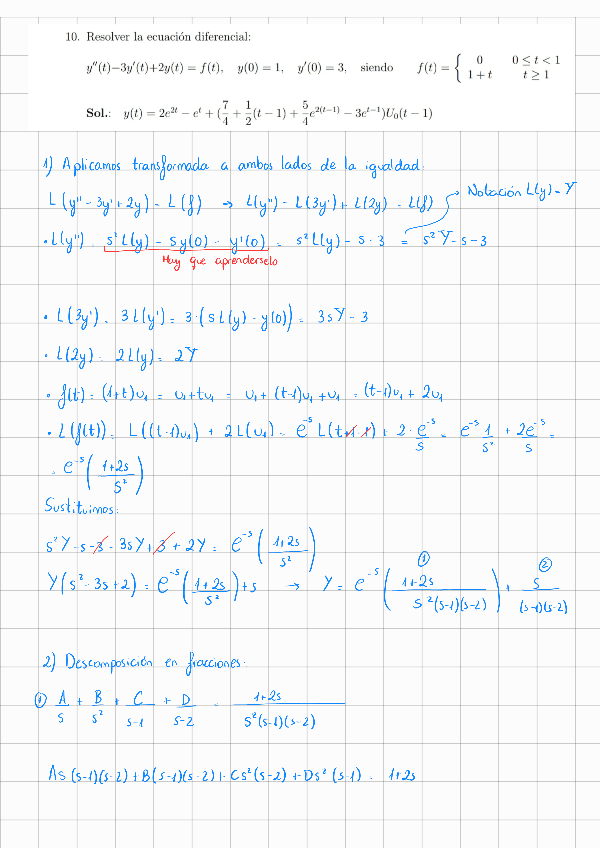 10. Resolver la ecuación diferencial:
y''(t)−3y'(t)+2y(t) = f(t), y(0) = 1, y'(0) = 3, siendo f(t) = { 0 0 ≤ t < 1
1 + t t ≥ 1
Sol.: y(t) = 2e^{2t} − e^t + (7/4 + 1/2(t − 1) + 5/4 e^{2(t−1)} − 3e^{t−1})U₀(t − 1)
1) Aplicamos transformada a ambos lados de la igualdad:
L(y'' - 3y' + 2y) = L(f) → L(y'') - L(3y') + L(2y) = L(f) → Notación L(y) = Y
• L(y'') = s² L(y) - s y(0) - y'(0) = s² L(y) - s - 3 = s² Y - s - 3
Hay que aprenderselo
• L(3y') = 3 L(y') = 3·(s L(y) - y(0)) = 3sY - 3
• L(2y) = 2 L(y) = 2Y
• f(t) = (1+t)u₁ = u₁ + tu₁ = u₁ + (t-1)u₁ + u₁ = (t-1)u₁ + 2u₁
• L(f(t)) = L((t-1)u₁) + 2 L(u₁) = e^{-s} L(t+1-1) + 2 · e^{-s}/s = e^{-s} 1/s² + 2e^{-s}/s =
= e^{-s} ( (1+2s)/s² )
Sustituimos:
s² Y - s - 3 - 3sY + 3 + 2Y = e^{-s} ( (1+2s)/s² )
Y(s² - 3s + 2) = e^{-s} ( (1+2s)/s² ) + s → Y = e^{-s} ( ① (1+2s)/(s²(s-1)(s-2)) ) + ② s/((s-1)(s-2))
2) Descomposición en fracciones:
① A/s + B/s² + C/(s-1) + D/(s-2) = (1+2s)/(s²(s-1)(s-2))
As(s-1)(s-2) + B(s-1)(s-2) + Cs²(s-2) + Ds²(s-1) = 1+2s